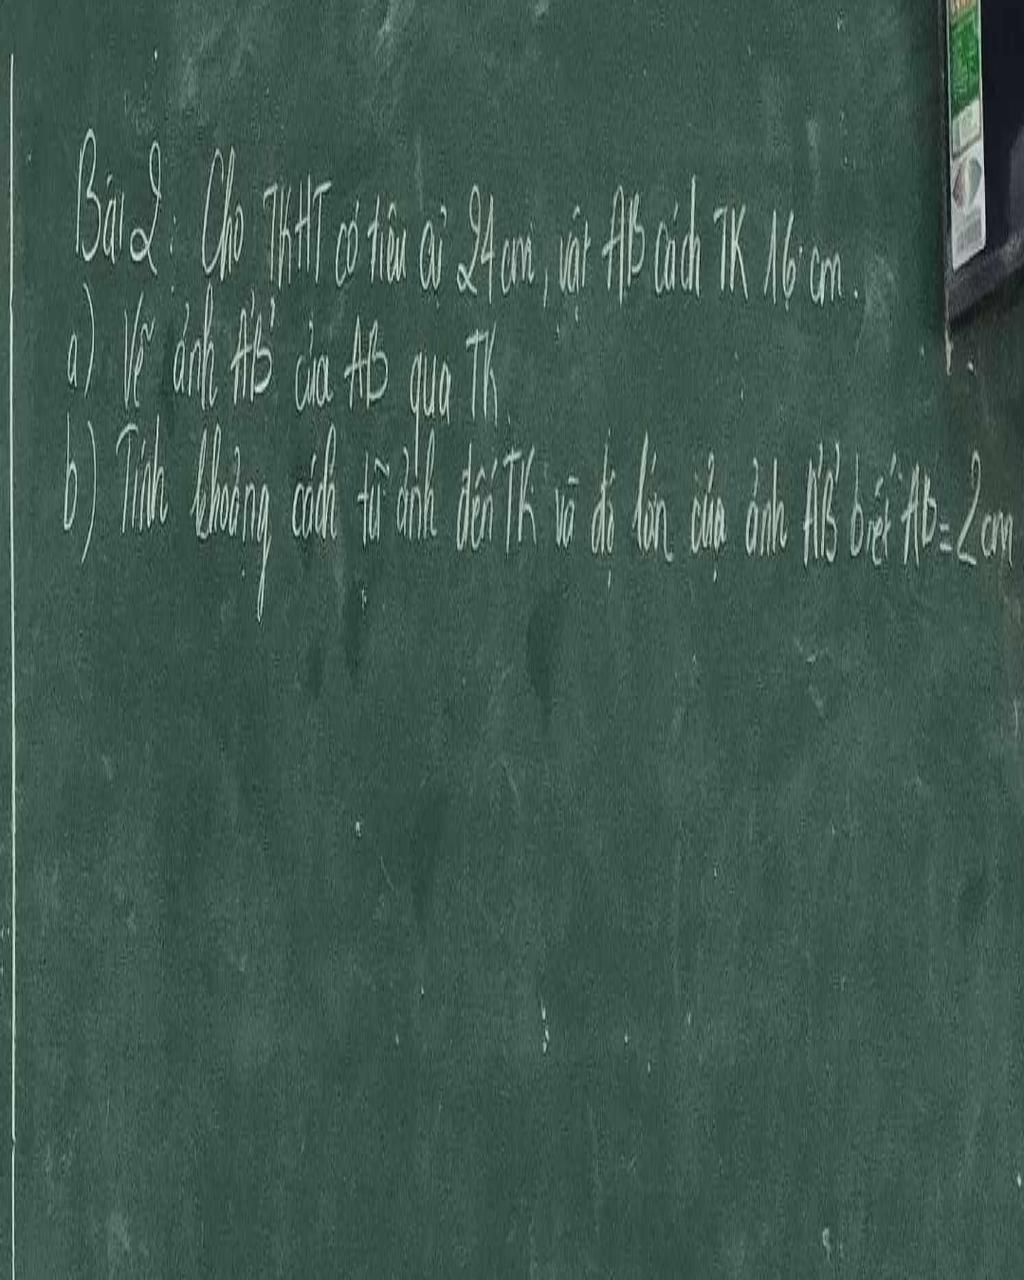 Bài 2: Cho TKHT có tiêu cự 24 cm, vật AB cách TK 16 cm.
a) Vẽ ảnh A'B' của AB qua TK
b) Tính khoảng cách từ ảnh đến TK và độ lớn của ảnh A'B' biết AB = 2 cm